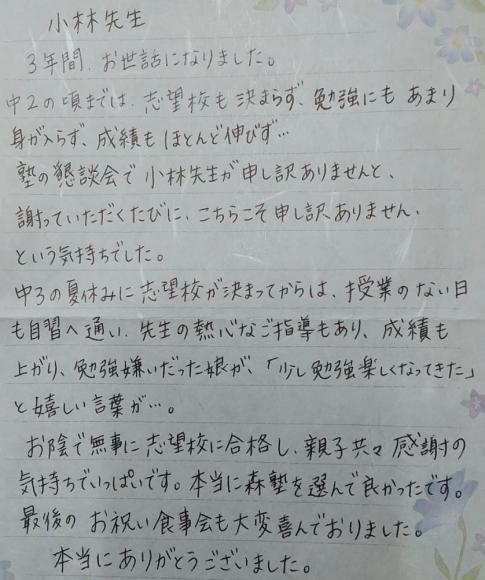 小林先生
3年間、お世話になりました。
中2の頃までは、志望校も決まらず、勉強にもあまり
身が入らず、成績もほとんど伸びず…
塾の懇談会で小林先生が申し訳ありませんと、
謝っていただくたびに、こちらこそ申し訳ありません、
という気持ちでした。
中3の夏休みに志望校が決まってからは、授業のない日
も自習へ通い、先生の熱心なご指導もあり、成績も
上がり、勉強嫌いだった娘が、「少し勉強楽しくなってきた」
と嬉しい言葉が…。
お陰で無事に志望校に合格し、親子共々感謝の
気持ちでいっぱいです。本当に森塾を選んで良かったです。
最後のお祝い食事会も大変喜んでおりました。
本当にありがとうございました。